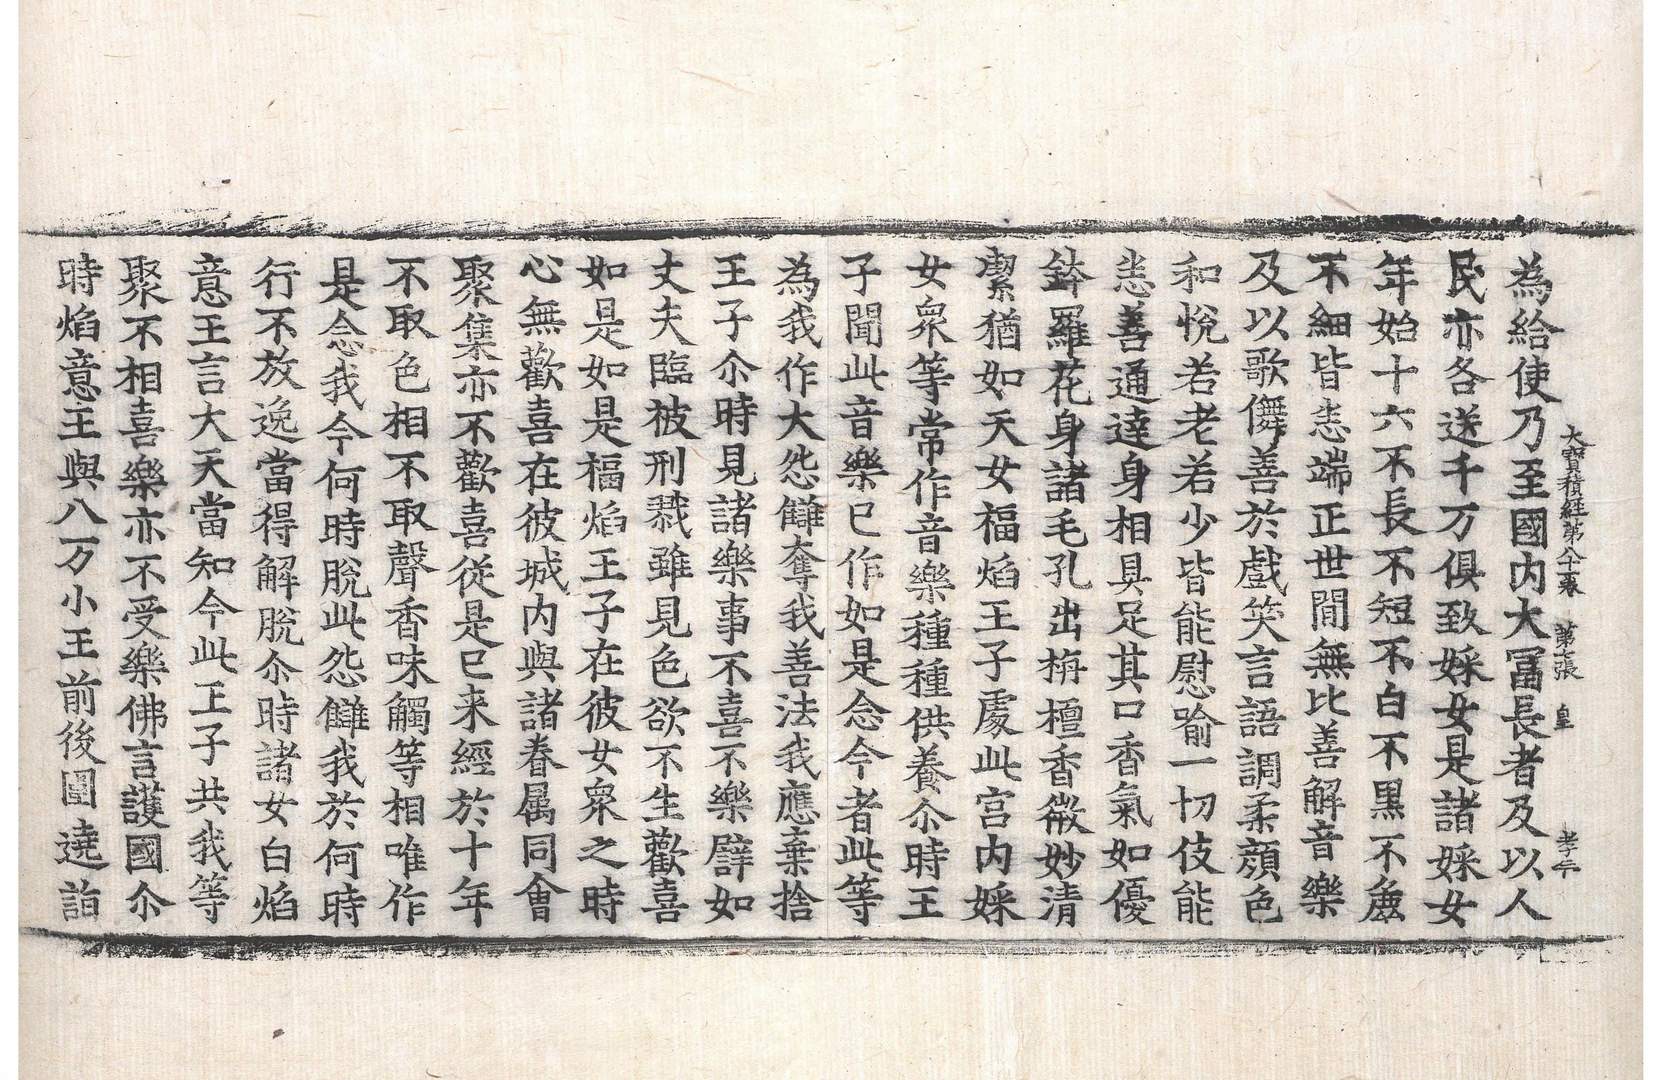 大寶積經第八十一卷 第七張 皇
為給使乃至國內大冨長者及以人
民亦各送千万俱致婇女是諸婇女
年始十六不長不短不白不黑不麁
不細皆悉端正世間無比善解音樂
及以歌儛善於戲笑言語調柔顔色
和悅若老若少皆能慰喻一切伎能
悉善通達身相具足其口香氣如優
鉢羅花身諸毛孔出栴檀香微妙清
潔猶如天女福焰王子處此宮內婇
女衆等常作音樂種種供養尒時王
子聞此音樂已作如是念今者此等
為我作大怨讎奪我善法我應棄捨
王子尒時見諸樂事不喜不樂譬如
丈夫臨被刑戮雖見色欲不生歡喜
如是如是福焰王子在彼女衆之時
心無歡喜在彼城內與諸眷属同會
聚集亦不歡喜從是已来經於十年
不取色相不取聲香味觸等相唯作
是念我今何時脫此怨讎我於何時
行不放逸當得解脫尒時諸女白焰
意王言大天當知今此王子共我等
聚不相喜樂亦不受樂佛言護國尒
時焰意王與八万小王前後圍遶詣